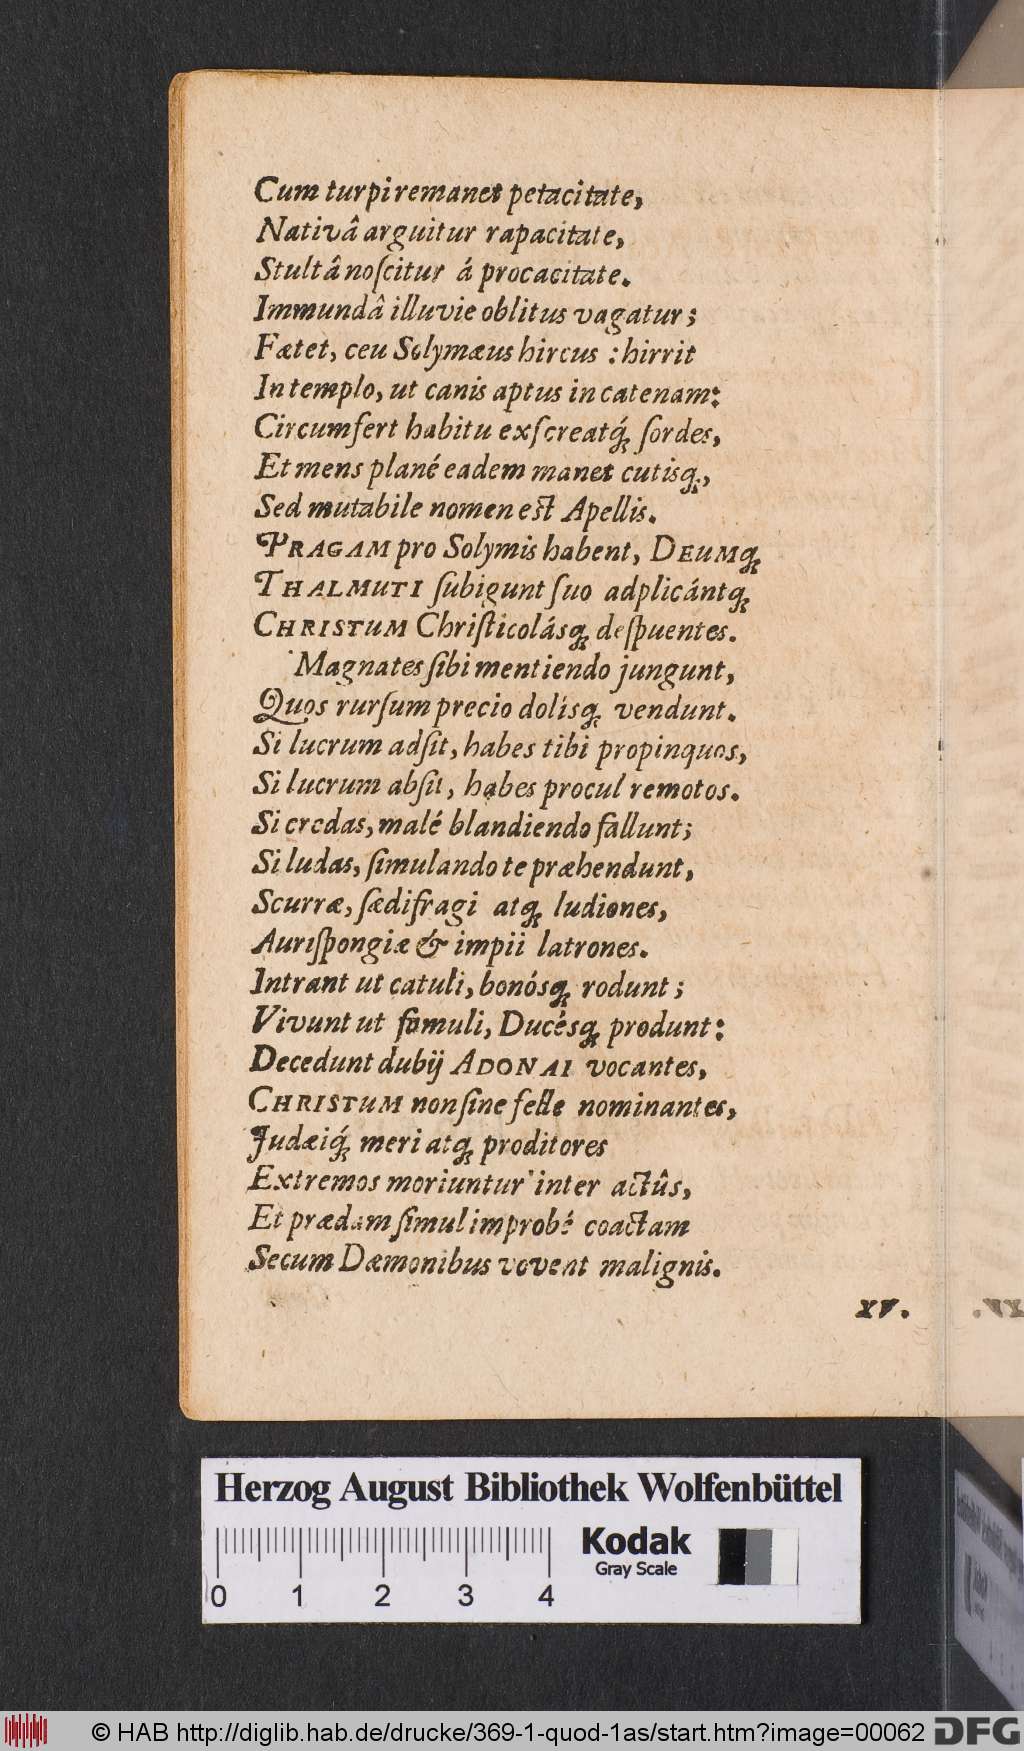 Cum turpi remanet petacitate,
Nativâ arguitur rapacitate,
Stultâ noſcitur á procacitate.
Immundâ illuvie oblitus vagatur;
Fætet, ceu Solymæus hircus : hirrit
In templo, ut canis aptus in catenam:
Circumfert habitu exſcreatq́; ſordes,
Et mens plané eadem manet cutisq;,
Sed mutabile nomen eſt Apellis.
PRAGAM pro Solymis habent, DEUMq;
THALMUTI ſubigunt ſuo adplicántq;
CHRISTUM Chriſticolásq; deſpuentes.
Magnates ſibi mentiendo jungunt,
Quos rurſum precio dolísq; vendunt.
Si lucrum adſit, habes tibi propinquos,
Si lucrum abſit, habes procul remotos.
Si credas, malé blandiendo fallunt;
Si ludas, ſimulando te præhendunt,
Scurræ, fædifragi atq; ludiones,
Auriſpongiæ & impii latrones.
Intrant ut catuli, bonósq; rodunt;
Vivunt ut famuli, Ducésq; produnt:
Decedunt dubij ADONAI vocantes,
CHRISTUM non ſine felle nominantes,
Judæiq́; meri atq; proditores
Extremos moriuntur inter actûs,
Et prædam ſimul improbé coactam
Secum Dæmonibus vovent malignis.
XV.
XV.
Herzog August Bibliothek Wolfenbüttel
Kodak
Gray Scale
0 1 2 3 4
© HAB http://diglib.hab.de/drucke/369-1-quod-1as/start.htm?image=00062 DFG